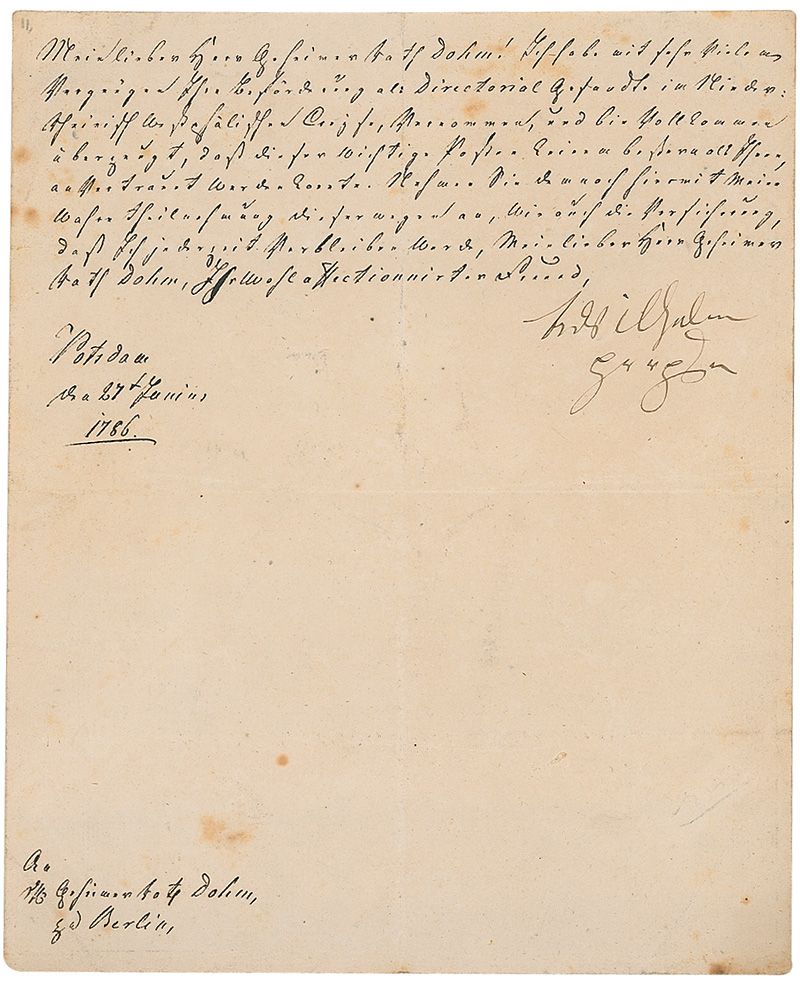 11,
Mein lieber Herr Geheimer Rath Dohm! Ich habe mit sehr Vielem
Vergnügen Ihre Beförderung als Directorial Gesandte im Nieder:
rheinisch Westphälischen Creyse, Vernommen, und bin Vollkommen
überzeugt, daß dieser wichtige Posten keinem beßern als Ihnen,
anVertrauet werden konte. Nehmen Sie demnach hiermit Meine
wahre theilnehmung dieserwegen an, wie auch die Versicherung,
daß Ich jederzeit Verbleiben werde, Mein lieber Herr Geheimer
Rath Dohm, Ihr Wohl affectionnirter Freund,
FrdWilhelm
PrvPn
Potsdam
den 27t Junius
1786.
An
Geheimen Rath Dohm,
zu Berlin,